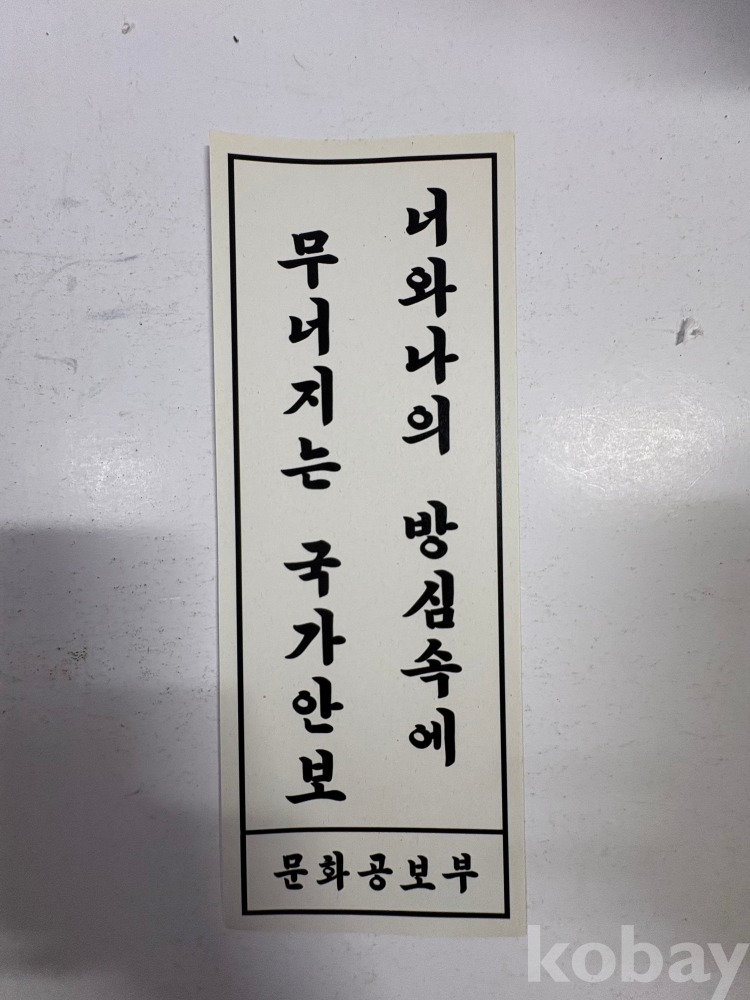 너와나의 방심속에
무너지는 국가안보
문화공보부
kobay